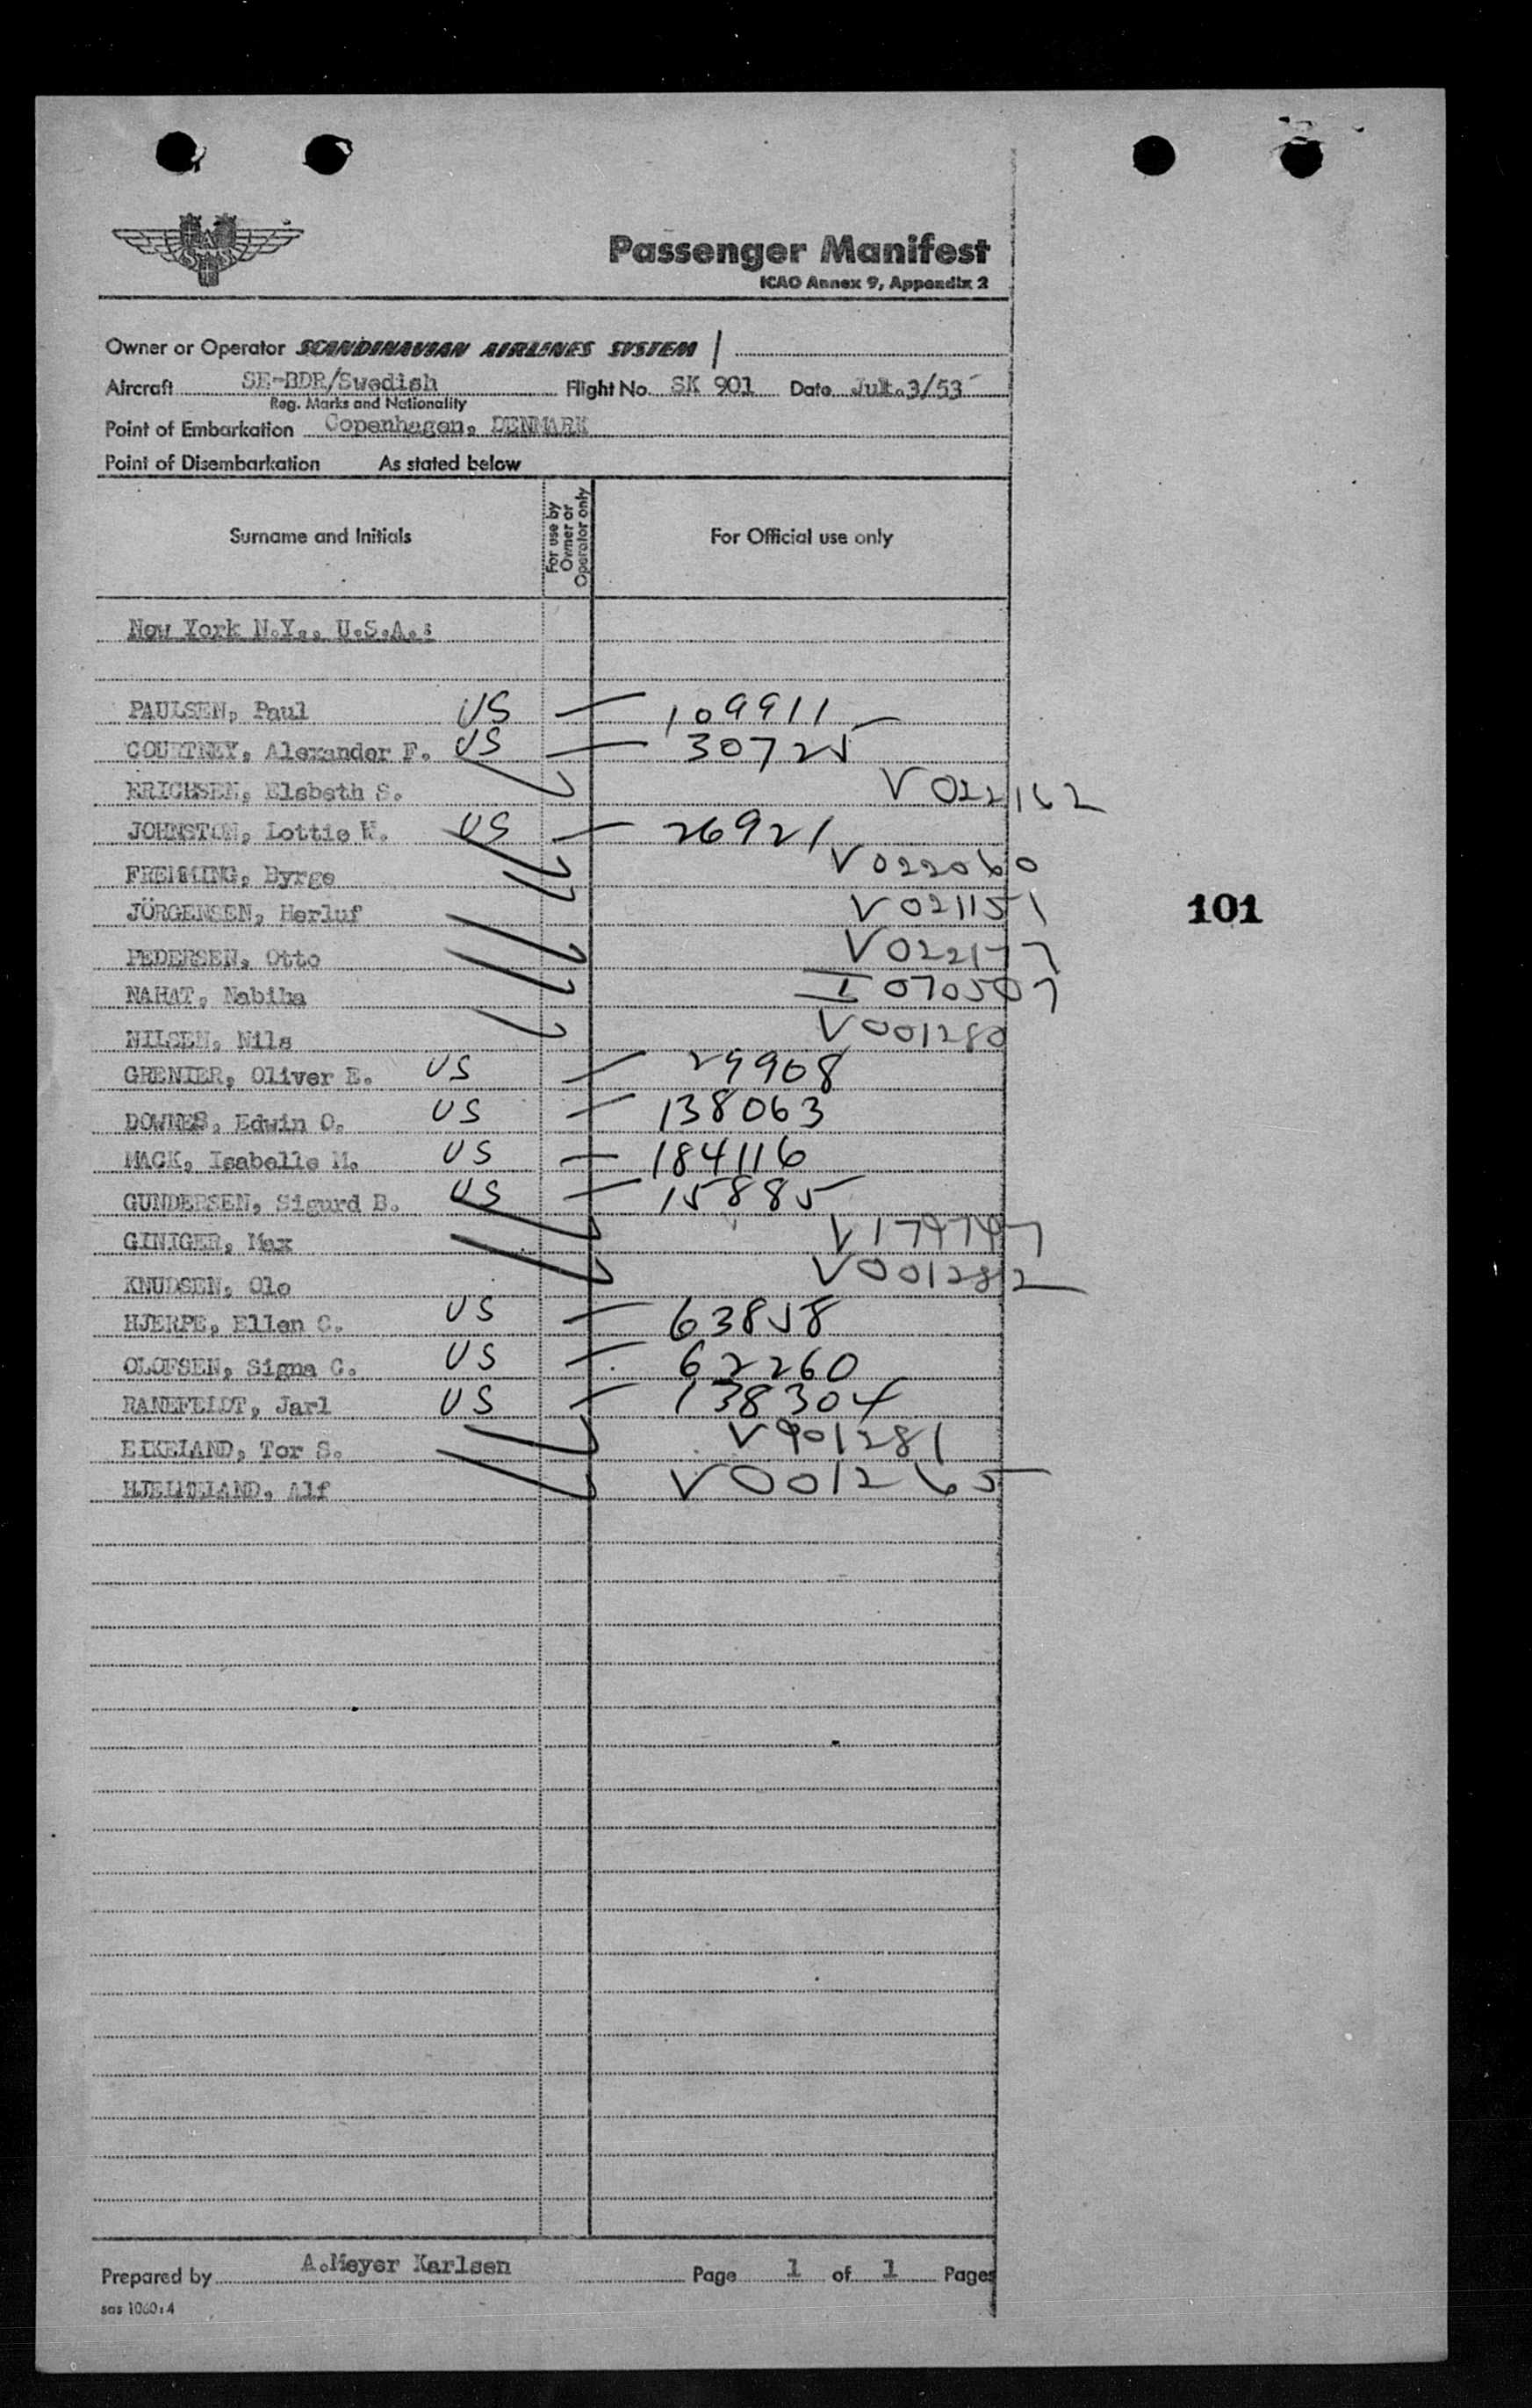 SAS
Passenger Manifest
ICAO Annex 9, Appendix 2
Owner or Operator SCANDINAVIAN AIRLINES SYSTEM
Aircraft SE-BDR/Swedish Flight No. SK 901 Date 3/53
Reg. Marks and Nationality
Point of Embarkation Copenhagen, DENMARK
Point of Disembarkation As stated below
Surname and Initials For use by Owner or Operator only For Official use only
New York N.Y., U.S.A.:
PAULSEN, Paul US — 109911
COURTNEY, Alexander F. US — 30725
ERICHSEN, Elsbeth S. V022162
JOHNSTON, Lottie W. US — 26921
Byrge V022060
JÖRGENSEN, Herluf V021151
PEDERSEN, Otto V022177
NAHAT, Nabiha I 070507
NILSEN, Nils V001280
GRENIER, Oliver E. US — 29908
DOWNES, Edwin O. US — 138063
MACK, Isabelle M. US — 184116
GUNDERSEN, Sigurd B. US — 15885
GINIGER, Max
KNUDSEN, Ole V001282
HJERPE, Ellen C. US — 63858
OLOFSEN, Signa C. US — 62260
RANEFELDT, Jarl US — 138304
EIKELAND, Tor S.
HJELMELAND, Alf V001265
101
Prepared by A.Meyer Karlsen Page 1 of 1 Pages
sas 1060:4